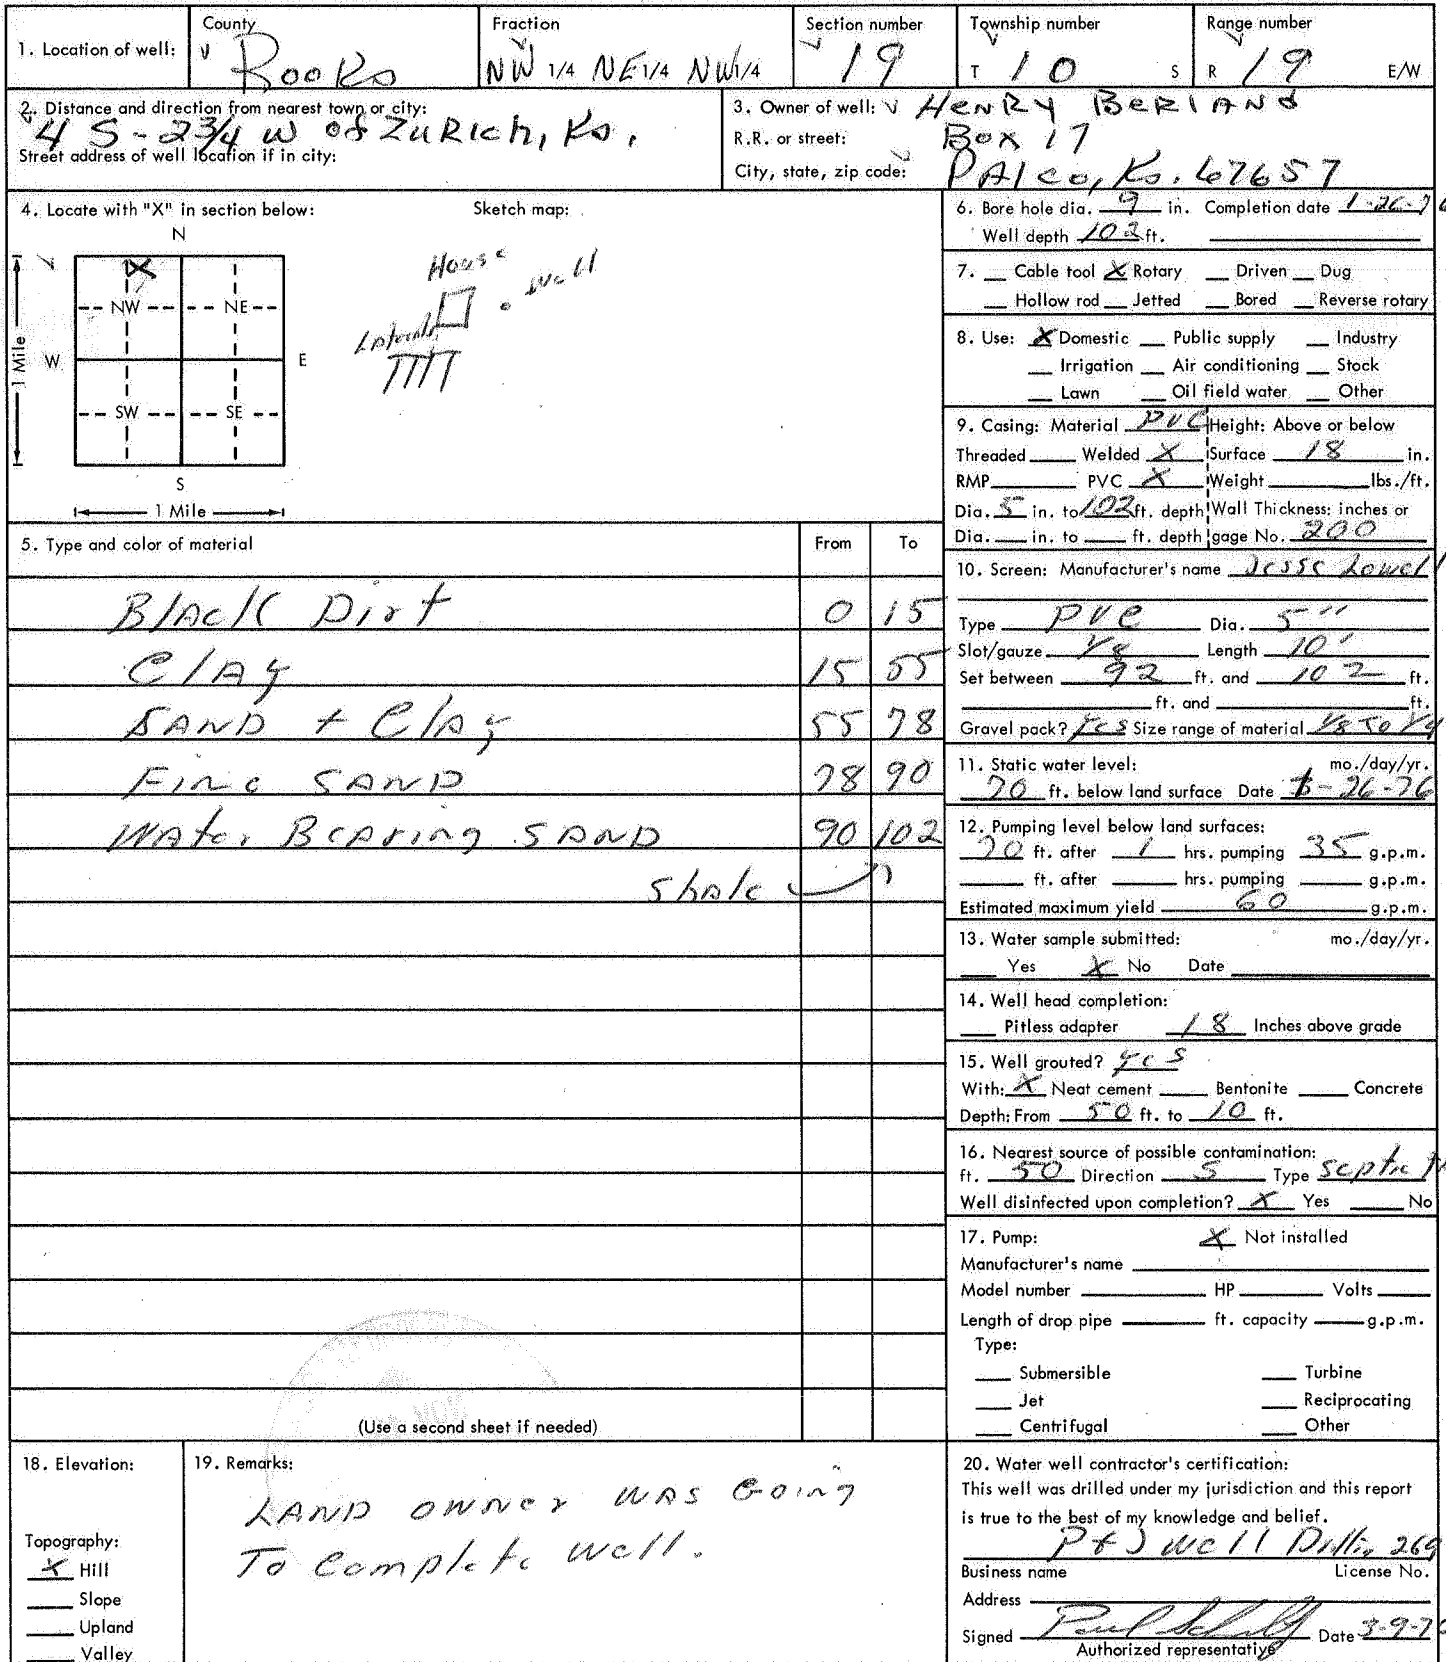 1. Location of well: County Rooks Fraction NW 1/4 NE 1/4 NW 1/4 Section number 19 Township number T 10 S Range number R 19 E/W
2. Distance and direction from nearest town or city:
4 S - 2 3/4 W of Zurich, Ks.
Street address of well location if in city:
3. Owner of well: Henry Berland
R.R. or street: Box 17
City, state, zip code: Palco, Ks. 67657
4. Locate with "X" in section below: Sketch map:
N
X
NW NE
W E
SW SE
S
1 Mile
1 Mile
House
Well
Laterals
5. Type and color of material From To
Black Dirt 0 15
Clay 15 55
Sand + Clay 55 78
Fine Sand 78 90
Water Bearing Sand 90 102
Shale
(Use a second sheet if needed)
6. Bore hole dia. 9 in. Completion date 1-26-76
Well depth 102 ft.
7. Cable tool X Rotary Driven Dug
Hollow rod Jetted Bored Reverse rotary
8. Use: X Domestic Public supply Industry
Irrigation Air conditioning Stock
Lawn Oil field water Other
9. Casing: Material PVC Height: Above or below
Threaded Welded X Surface 18 in.
RMP PVC X Weight lbs./ft.
Dia. 5 in. to 102 ft. depth Wall Thickness: inches or
Dia. in. to ft. depth gage No. 200
10. Screen: Manufacturer's name Jesse Lowell
Type PVC Dia. 5"
Slot/gauze 1/8 Length 10'
Set between 92 ft. and 102 ft.
ft. and ft.
Gravel pack? Yes Size range of material 1/8 to 1/4
11. Static water level: mo./day/yr.
70 ft. below land surface Date -26-76
12. Pumping level below land surfaces:
70 ft. after 1 hrs. pumping 35 g.p.m.
ft. after hrs. pumping g.p.m.
Estimated maximum yield 60 g.p.m.
13. Water sample submitted: mo./day/yr.
Yes X No Date
14. Well head completion:
Pitless adapter 18 Inches above grade
15. Well grouted? yes
With: X Neat cement Bentonite Concrete
Depth: From 50 ft. to 10 ft.
16. Nearest source of possible contamination:
ft. 50 Direction S Type Septic
Well disinfected upon completion? X Yes No
17. Pump: X Not installed
Manufacturer's name
Model number HP Volts
Length of drop pipe ft. capacity g.p.m.
Type:
Submersible Turbine
Jet Reciprocating
Centrifugal Other
18. Elevation:
Topography:
X Hill
Slope
Upland
Valley
19. Remarks:
Land owner was going
To Complete well.
20. Water well contractor's certification:
This well was drilled under my jurisdiction and this report
is true to the best of my knowledge and belief.
P + J Well Drillin 269
Business name License No.
Address
Signed Paul Date 3-9-76
Authorized representative